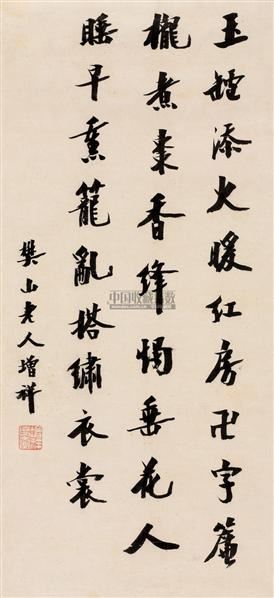 玉罏添火暖紅房卍字簾
櫳煮棗香絳燭垂花人
睡早熏籠亂搭繡衣裳
樊山老人增祥
中国收藏指数